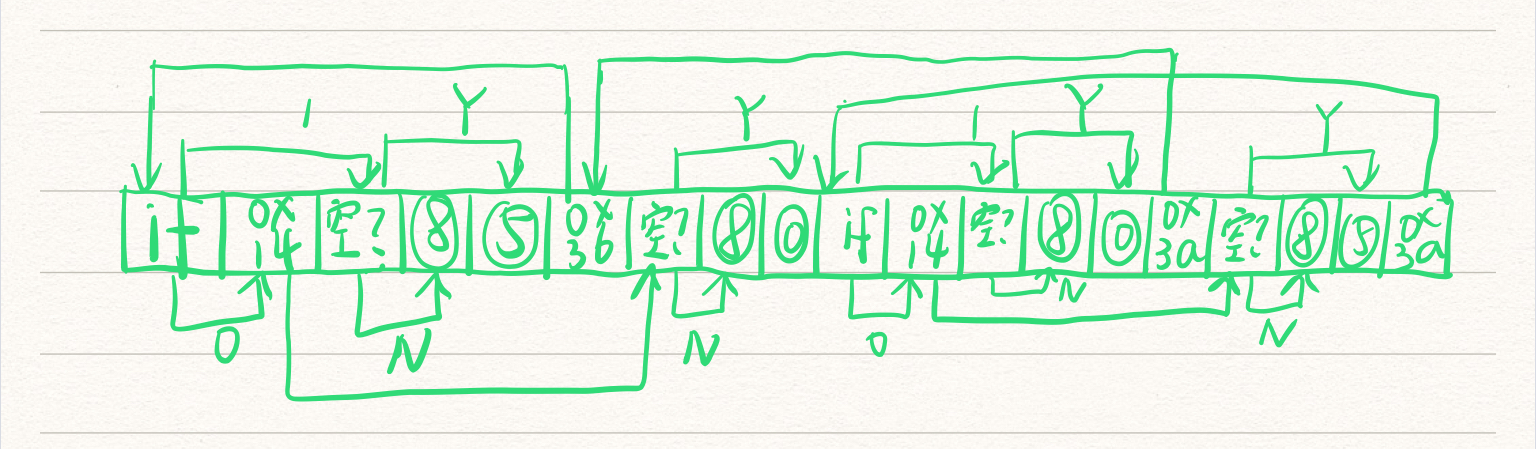 1 Y Y 1 Y Y
if 0x14 空? ⑧ ⑤ 0x36 空? ⑧ ⓪ if 0x14 空? ⑧ ⓪ 0x3a 空? ⑧ ⑤ 0x3a
0 N N 0 N N